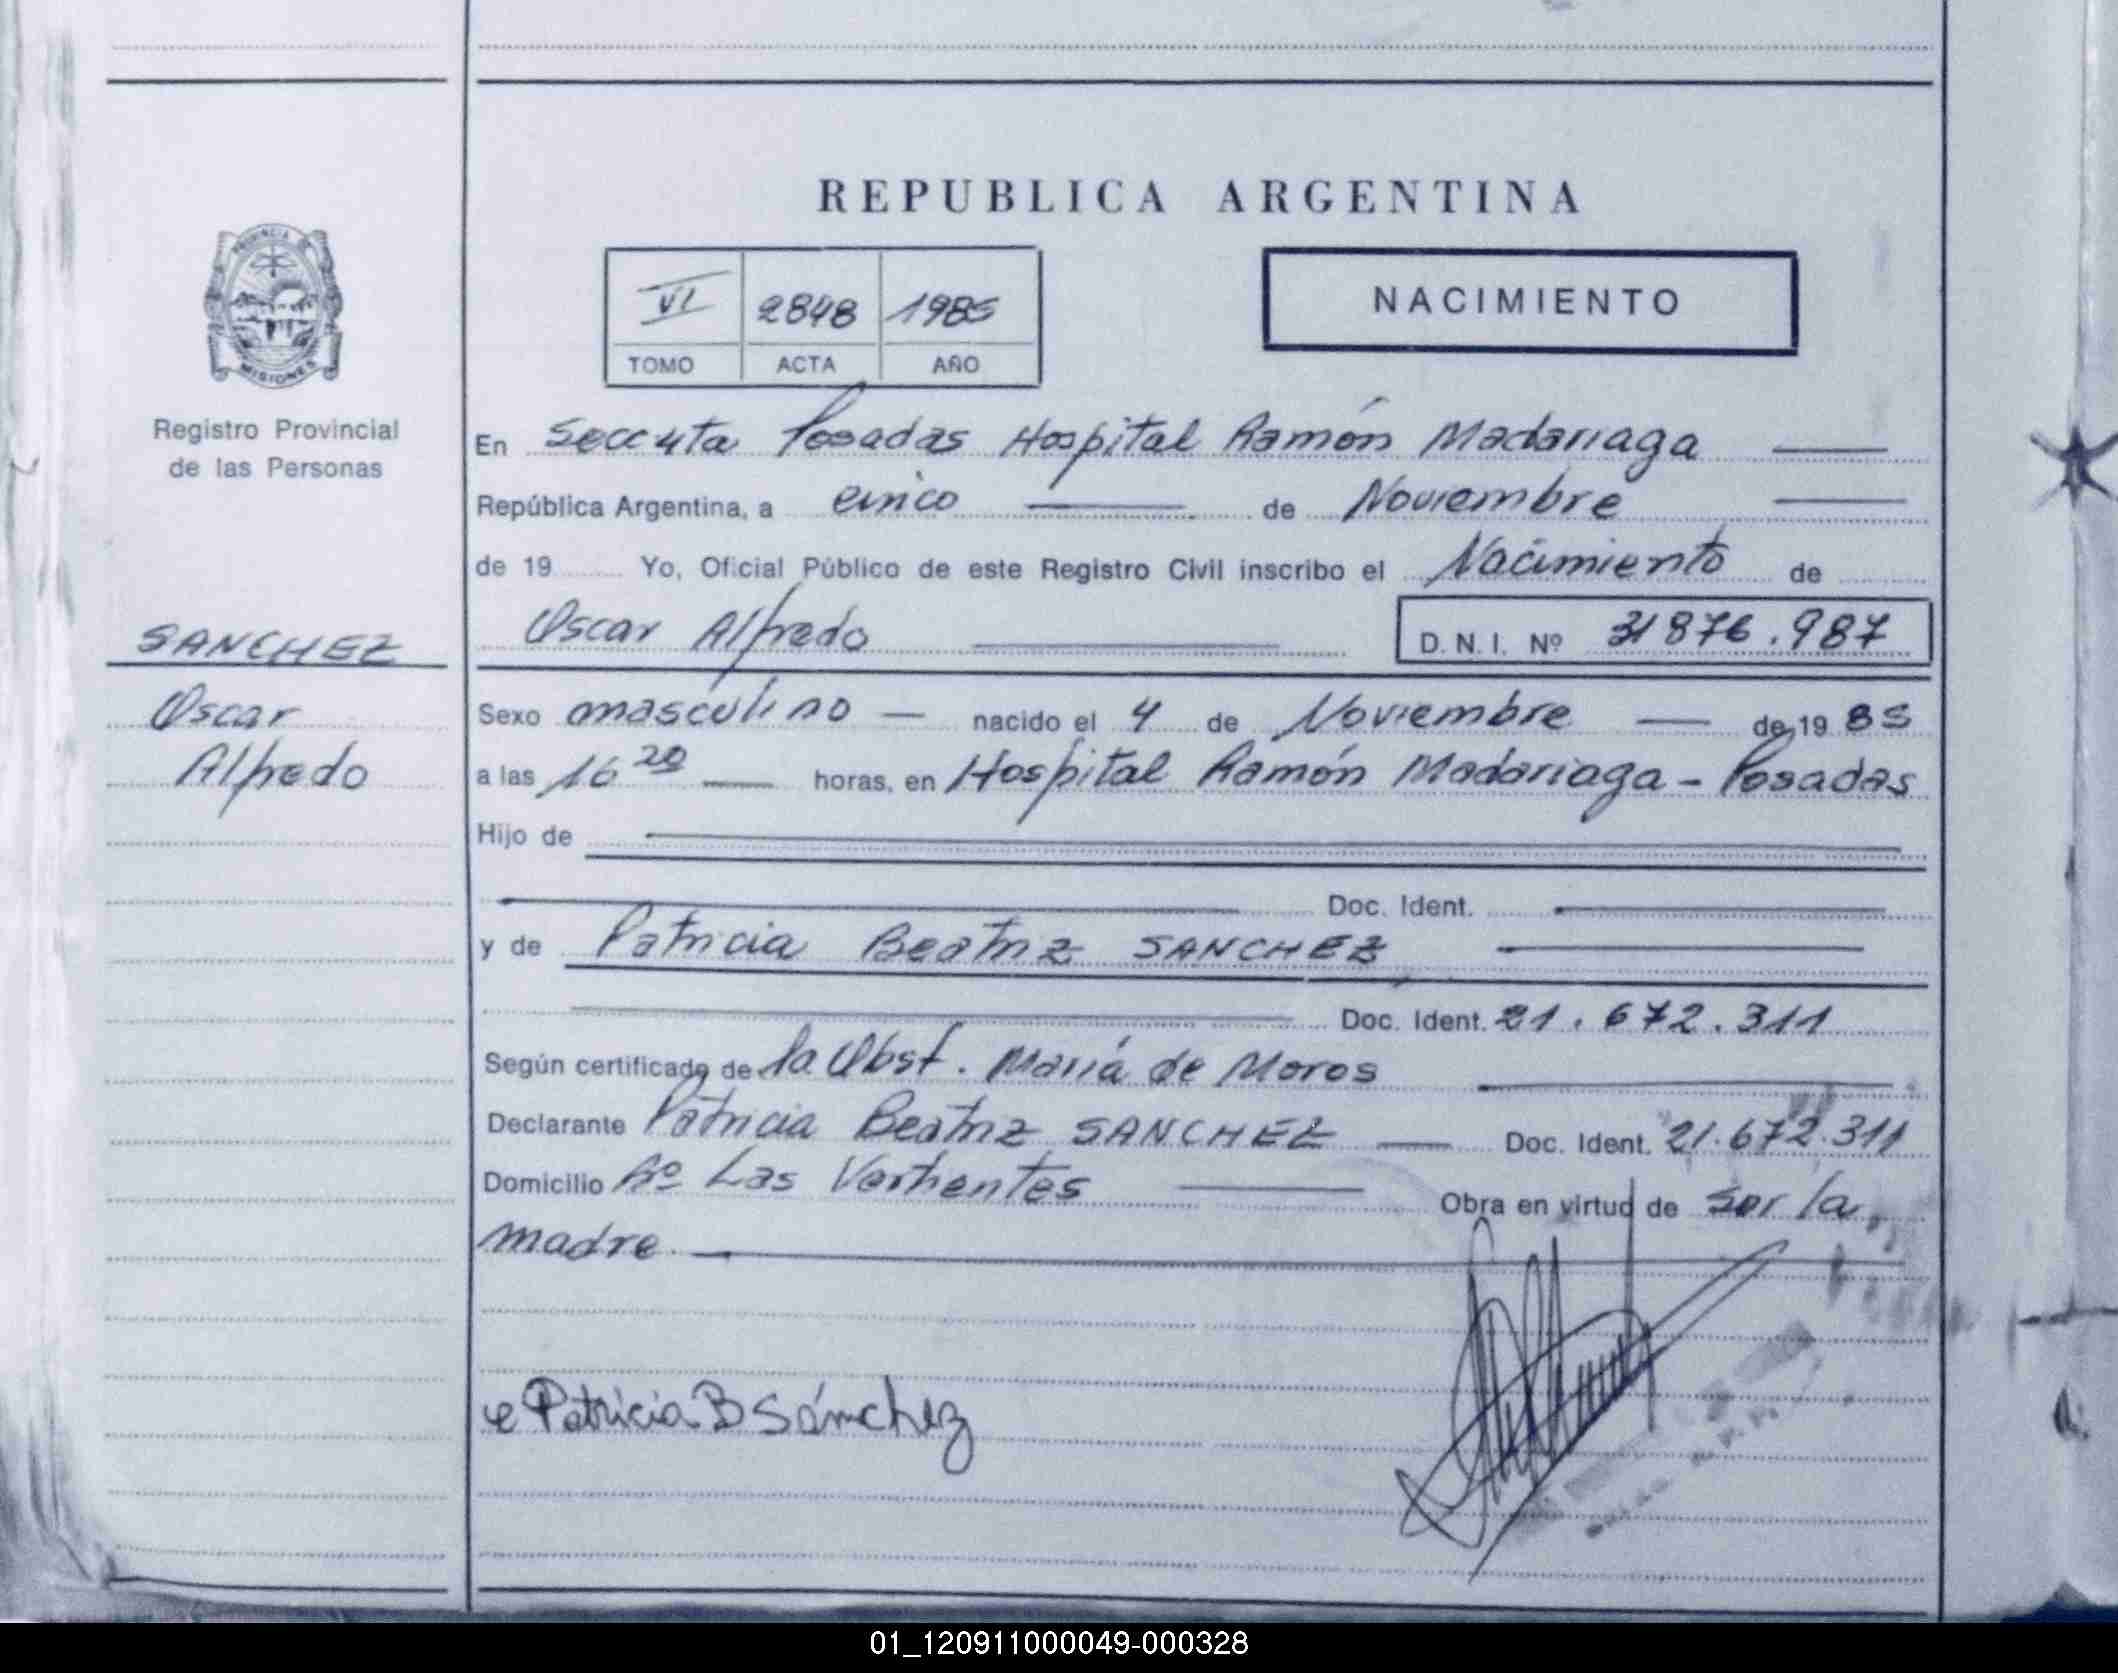 REPUBLICA ARGENTINA
VI 2848 1985
TOMO ACTA AÑO
NACIMIENTO
PROVINCIA DE
MISIONES
Registro Provincial
de las Personas
SANCHEZ
Oscar
Alfredo
En Secc 4ta Posadas Hospital Ramón Madariaga
República Argentina, a cinco de Noviembre
de 19 Yo, Oficial Público de este Registro Civil inscribo el Nacimiento de
Oscar Alfredo D. N. I. Nº 31876.987
Sexo masculino nacido el 4 de Noviembre de 19 85
a las 16 20 horas, en Hospital Ramón Madariaga - Posadas
Hijo de
Doc. Ident.
y de Patricia Beatriz SANCHEZ
Doc. Ident. 21.672.311
Según certificado de la Obst. María de Moros
Declarante Patricia Beatriz SANCHEZ Doc. Ident. 21.672.311
Domicilio Aº Las Vertientes Obra en virtud de ser la
madre
Patricia B Sánchez
01_120911000049-000328